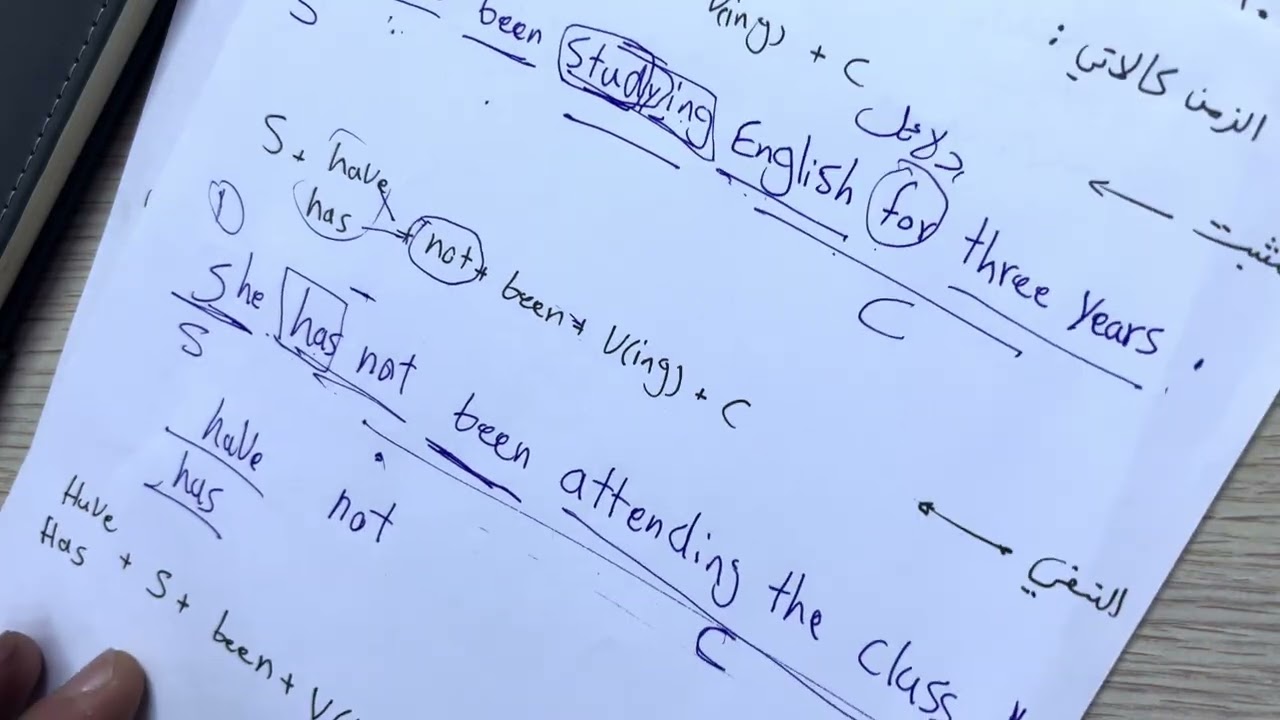 الزمن كالاتي :
V(ing) + C
been Studying English for three years .
دلائل
S
C
S + have
has + not + been + V(ing) + C
①
She has not been attending the class
S
C
have
has
not
النفي
Have
Has + S + been + V(